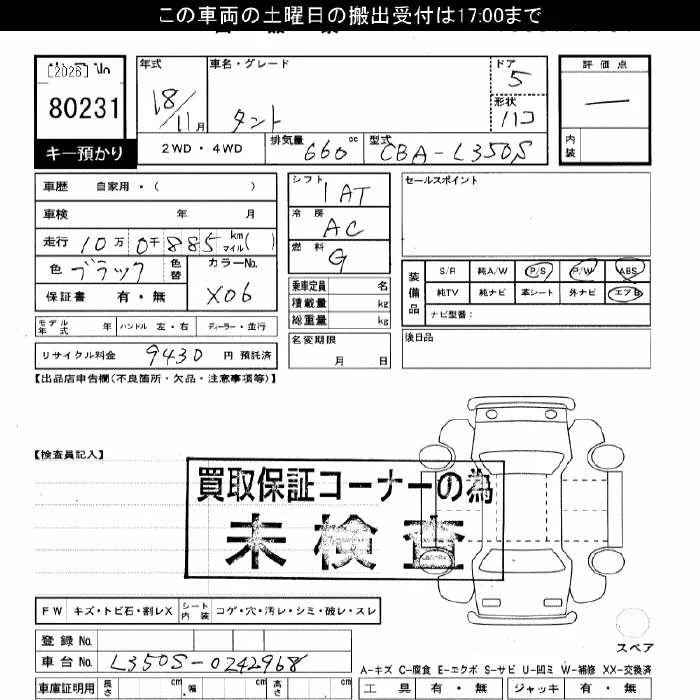 この車両の土曜日の搬出受付は17:00まで
[2026]
80231
キー預かり
年式 18/11月
車名・グレード
タント
ドア 5
形状 ハコ
2WD・4WD
排気量 660 cc
型式 CBA-L350S
評価点
―
内装
車歴 自家用・( )
車検 年 月
走行 10万0千885 km マイル( )
色 ブラック 色替
カラーNo. X06
保証書 有・無
モデル年式 年 ハンドル 左・右 ディーラー・並行
リサイクル料金 9430 円 預託済
シフト 1AT
冷房 AC
燃料 G
乗車定員 名
積載量 kg
総重量 kg
名変期限
月 日
セールスポイント
装備品
S/R 純A/W P/S P/W ABS
純TV 純ナビ 革シート 外ナビ エアB
ナビ型番:
後日品
【出品店申告欄(不良箇所・欠品・注意事項等)】
【検査員記入】
買取保証コーナーの為
未検査
FW キズ・トビ石・割レX
シート内装 コゲ・穴・汚レ・シミ・破レ・スレ
登録No.
車台No. L350S-0242968
車庫証明用 長さ cm 幅 cm 高さ cm
スペア
A-キズ C-腐食 E-エクボ S-サビ U-凹ミ W-補修 XX-交換済
工具 有・無 ジャッキ 有・無